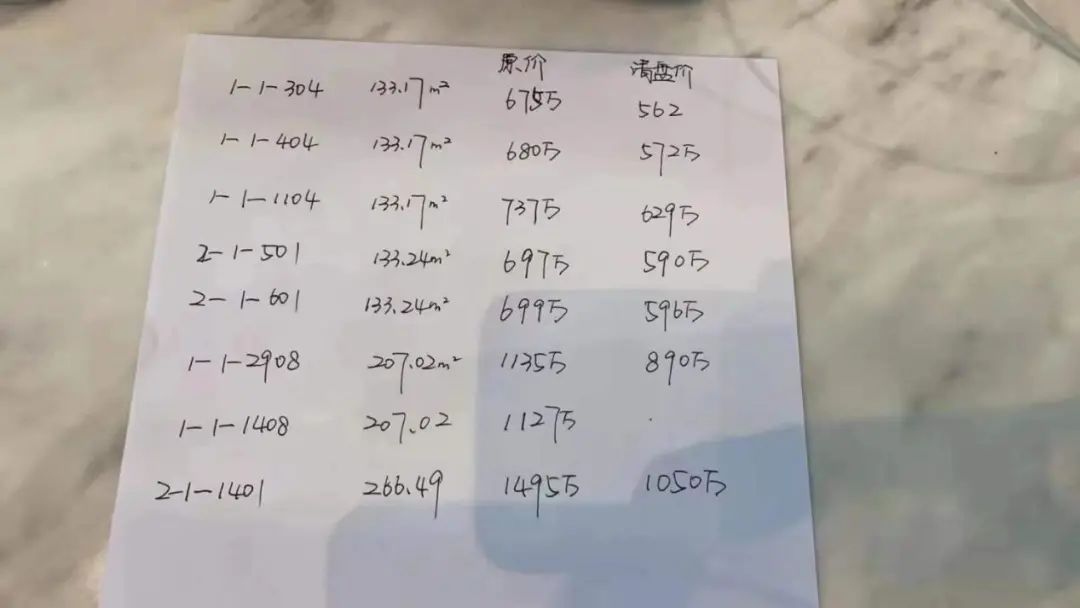 原价 清盘价
1-1-304 133.17m² 675万 562
1-1-404 133.17m² 680万 572万
1-1-1104 133.17m² 737万 629万
2-1-501 133.24m² 697万 590万
2-1-601 133.24m² 699万 596万
1-1-2908 207.02m² 1135万 890万
1-1-1408 207.02 1127万
2-1-1401 266.49 1495万 1050万